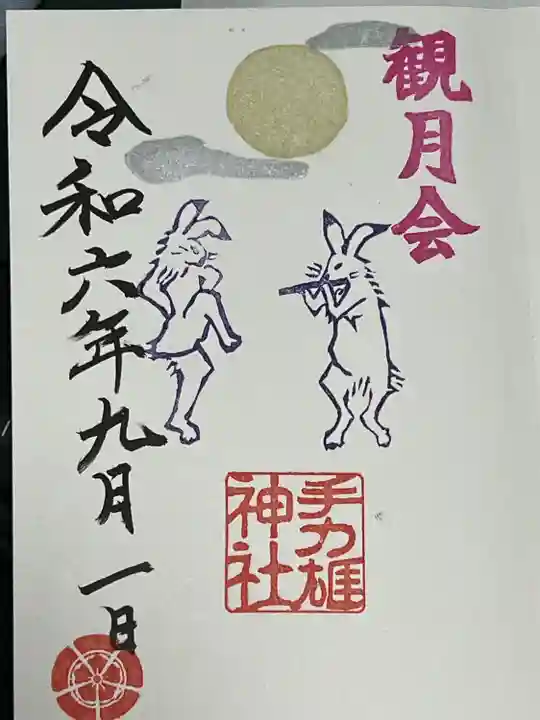 観月会
手力雄
神社
令和六年九月一日